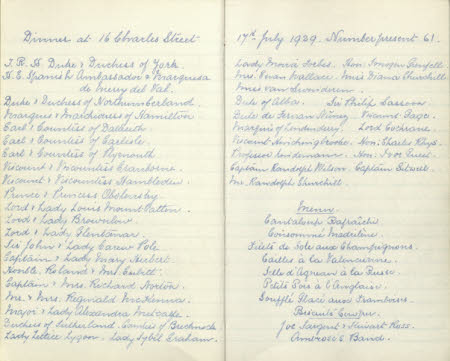 Dinner at 16 Charles Street
T.R.H Duke & Duchess of York.
H.E. Spanish Ambassador & Marquesa
de Merry del Val.
Duke & Duchess of Northumberland.
Marquess & Marchioness of Hamilton
Earl & Countess of Dalkeith
Earl & Countess of Carlisle.
Earl & Countess of Plymouth
Viscount & Viscountess Cranborne.
Viscount & Viscountess Hambleden.
Prince & Princess Obolensky.
Lord & Lady Louis Mountbatten.
Lord & Lady Brownlow.
Lord & Lady Plentamar.
Sir John & Lady Carew Pole
Captain & Lady Mary Herbert.
Honble. Roland & Mrs Cubitt.
Captain & Mrs. Richard Norton.
Mr. & Mrs. Reginald McKenna.
Major & Lady Alexandra Metcalfe.
Duchess of Sutherland. Countess of Birchnock
Lady Lettice Lygon. Lady Sybil Graham.
17th July 1929. Number present 61.
Lady Moira Forbes. Hon: Imogen Grenfell
Mrs. Euan Wallace. Miss Diana Churchill.
Miss van Swinderen.
Duke of Alba. Sir Philip Sassoon
Duke de Fernan Nunez. Viscount Gage.
Marquess of Londonderry. Lord Cochrane.
Viscount Hinchingbrooke. Hon: Charles Rhys.
Professor Lindemann. Hon: Ivor Guest.
Captain Randolph Wilson. Captain Sitwell.
Mr. Randolph Churchill.
Menu
Cantaloup Rafraîchi
Consommé Madrilène
Filets de Sole aux Champignons.
Cailles à la Valencienne.
Selle d'Agneau à la
Petits Pois à l'Anglaise.
Soufflé Glacé aux Framboises
Biscuits
Joe Sargent & Stewart Ross.
Ambrose's Band.